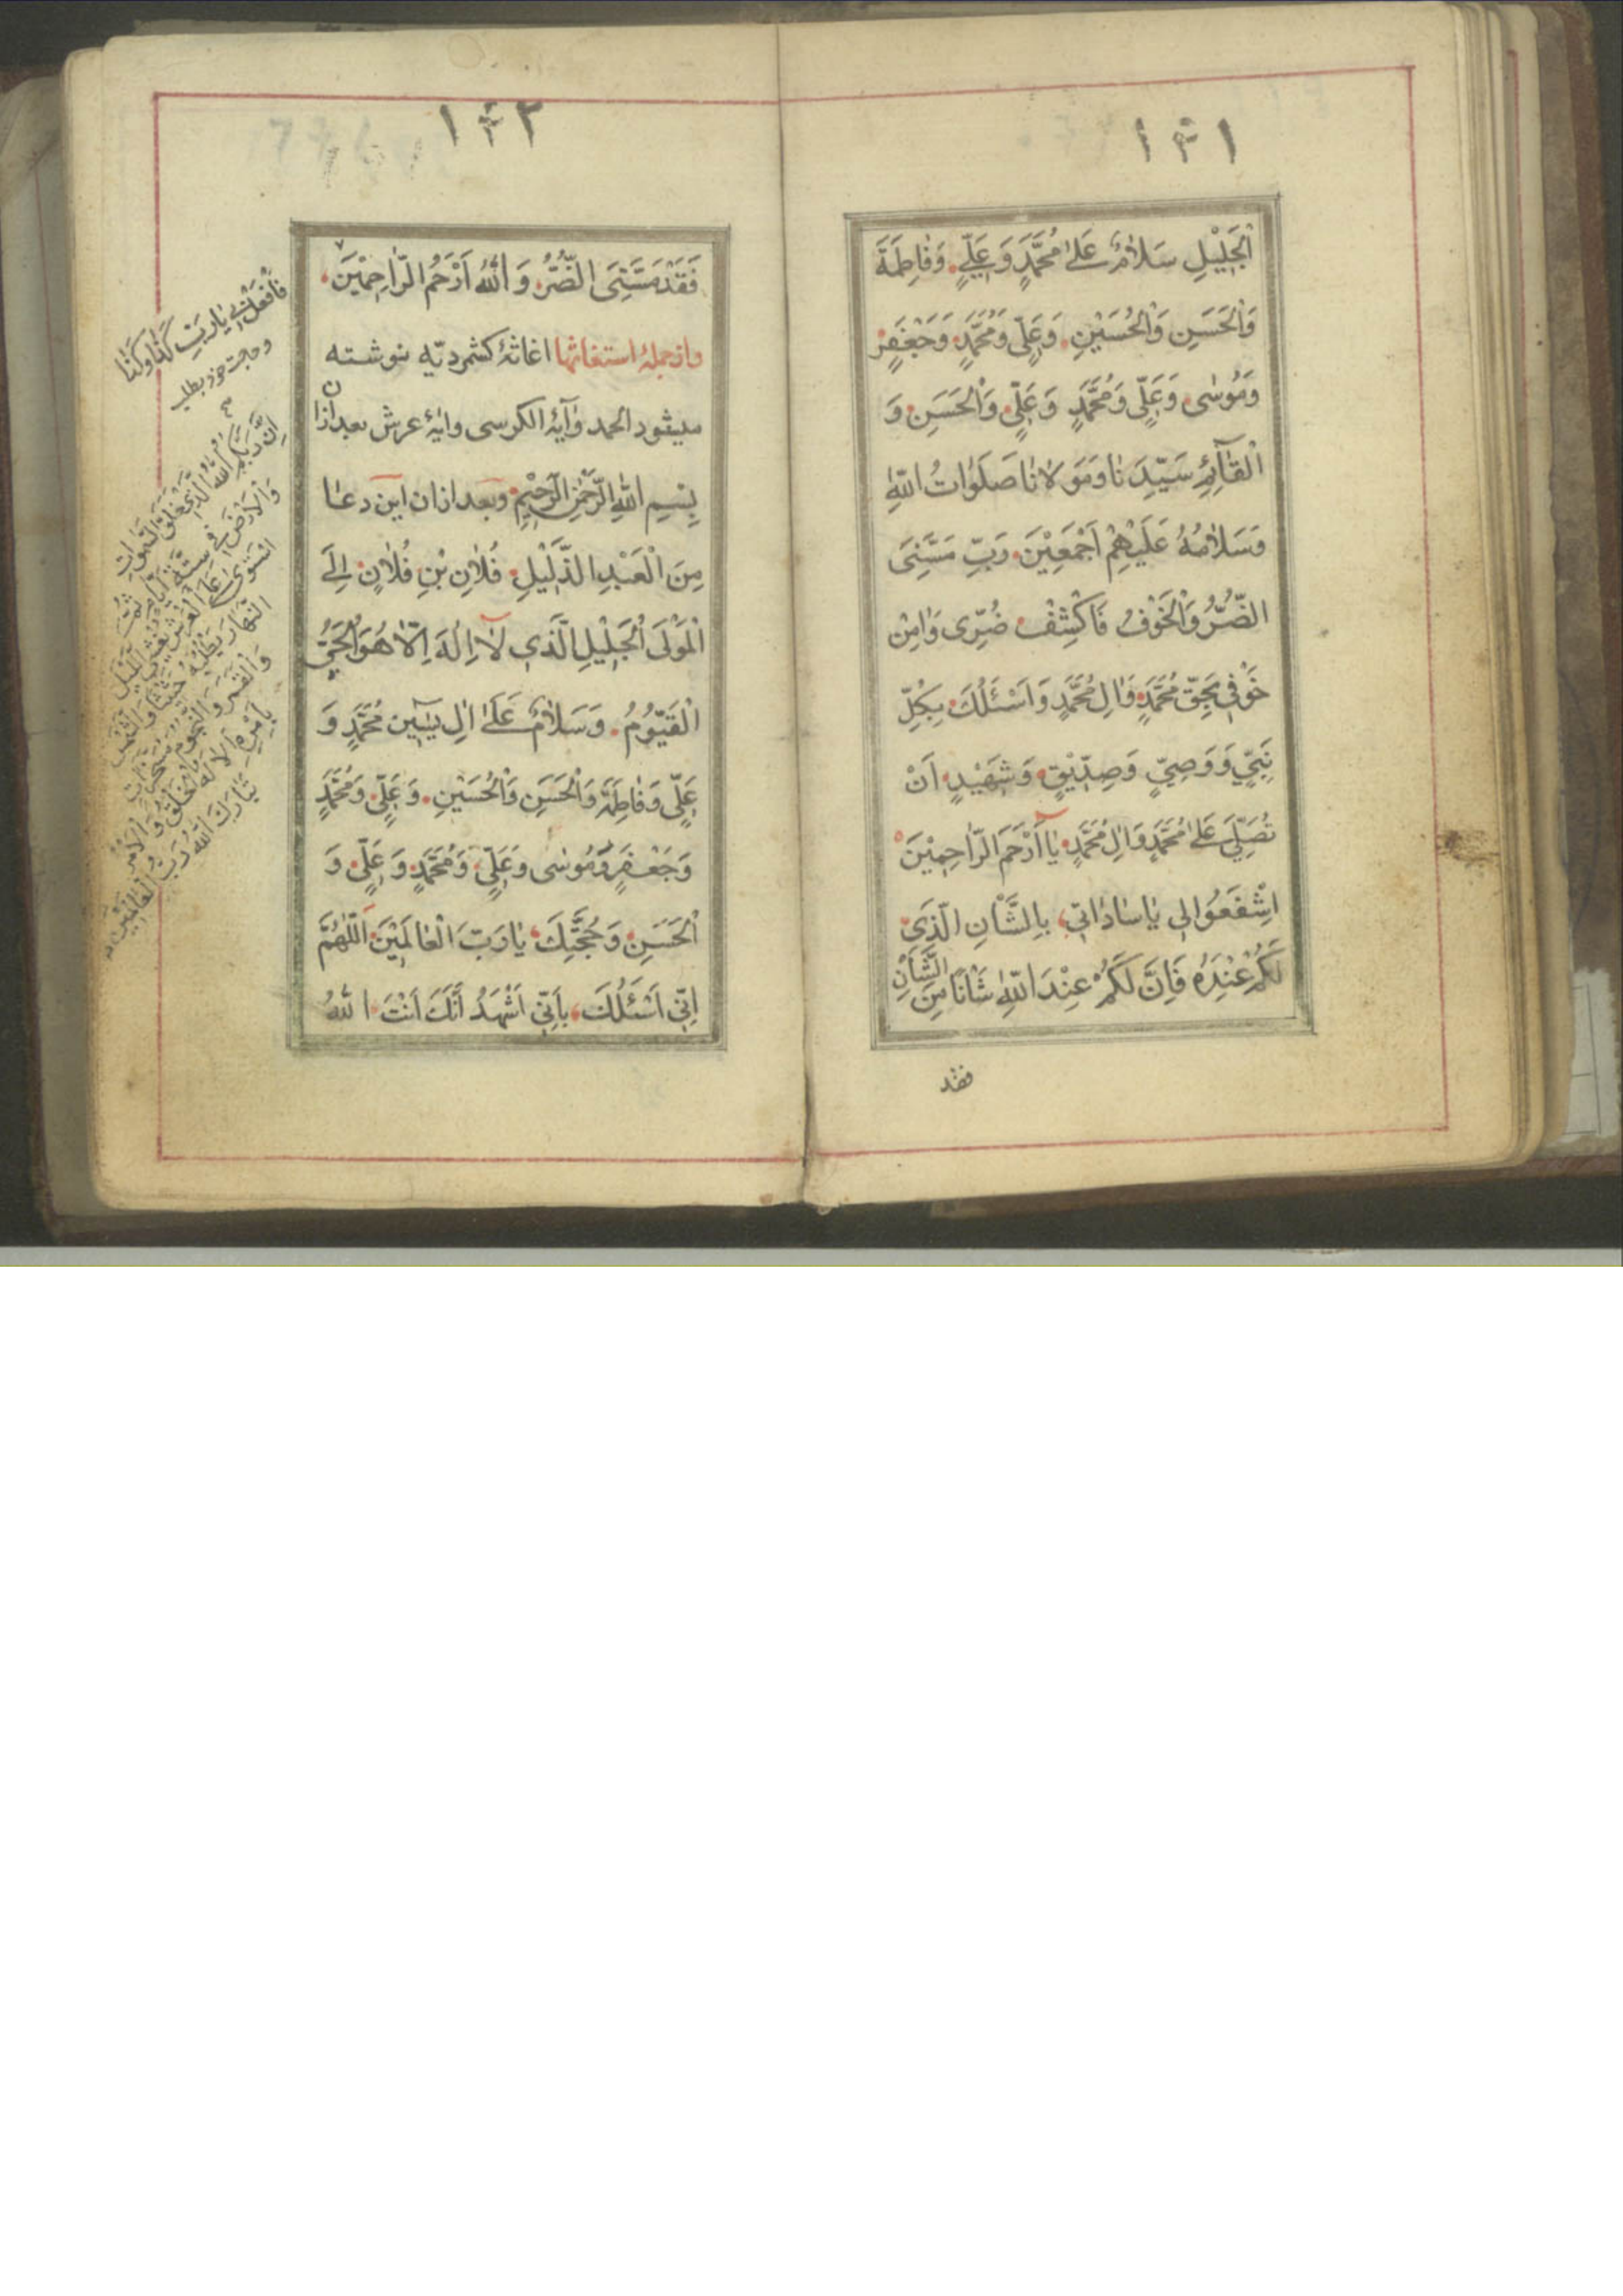 ١٣١
اَلْجَلِيْلِ سَلاٰمٌ عَلىٰ مُحَمَّدٍ وَعَلِيٍّ وَفاٰطِمَةَ
وَالْحَسَنِ وَالْحُسَيْنِ وَعَلِّىٍ وَمُحَمَّدٍ وَجَعْفَرٍ
وَمُوسٰى وَعَلِّىٍ وَمُحَمَّدٍ وَعَلِّىٍ وَالْحَسَنِ وَ
الْقٰآئِمِ سَيِّدَ ناٰ وَمَوَ لاٰناٰ صَلَوٰاتُ اللّٰهِ
وَسَلاٰمُهُ عَلَيْهِمْ اَجْمَعِيْنَ رَبِّ مَسَّنِىَ
الضُّرُّ وَالْخَوْفُ فَاكْشِفْ ضُرِّى وَاٰمِنْ
خَوْفِى بِحَقِّ مُحَمَّدٍ وَاٰلِ مُحَمَّدٍ وَاَسْئَلُكَ بِكُلِّ
نَبِيٍّ وَوَصِيٍّ وَصِدِّيْقٍ وَشَهِيْدٍ اَنْ
تُصَلِّيَ عَلىٰ مُحَمَّدٍ وَاٰلِ مُحَمَّدٍ ياٰ اَرْحَمَ الرّٰاحِمِيْنَ
اِشْفَعُوْالِى ياٰساٰداٰتِى بِالشَّأْنِ الَّذِى
لَكُمْ عِنْدَهُ فَاِنَّ لَكُمْ عِنْدَ اللّٰهِ شَأْنًا مِنَ الشَّأْنِ
فقد
١٣٢
فَقَدْ مَسَّنِىَ الضُّرُّ وَ اللّٰهُ اَرْحَمُ الرّاحِمِيْنَ
وازجملۀ استغاثها اغاثۀ كشمرديّه نوشته
ميشود الحمد وآيۀ الكرسى وايۀ عرش بعدازان
بِسْمِ اللّٰهِ الرَّحْمٰنِ الرَّحِيْمِ وبعد ازان اين دعا
مِنَ الْعَبْدِ الذَّلِيْلِ فُلاٰنِ بْنِ فُلاٰنٍ اِلَى
الْمَوْلَى الْجَلِيْلِ الَّذِى لاٰ اِلٰهَ اِلّاٰ هُوَ الْحَيُّ
الْقَيُّوْمُ وَسَلاٰمٌ عَلىٰ اٰلِ يٰسٓيٖن مُحَمَّدٍ وَ
عَلِّىٍ وَفاٰطِمَةَ وَالْحَسَنِ وَالْحُسَيْنِ وَعَلِّىٍ وَمُحَمَّدٍ
وَجَعْفَرٍ وَمُوسٰى وَعَلِّىٍ وَمُحَمَّدٍ وَعَلِّىٍ وَ
الْحَسَنِ وَحُجَّتِكَ ياٰرَبَّ الْعاٰلَمِيْنَ اَللّٰهُمَّ
اِنِّى اَسْئَلُكَ بِاَنِّى اَشْهَدُ اَنَّكَ اَنْتَ اللّٰهُ
فَافْعَلْ بِى ياٰرَبِّ كَذاٰ وَكَذاٰ
وحاجت خود بطلبد
اِنَّ رَبَّكُمُ اللّٰهُ الَّذِى خَلَقَ السَّمٰوٰاتِ
وَالْاَرْضَ فِى سِتَّةِ اَيّاٰمٍ ثُمَّ
اسْتَوٰى عَلَى الْعَرْشِ يُغْشِى اللَّيْلَ
النَّهاٰرَ يَطْلُبُهُ حَثِيْثًا وَالشَّمْسَ
وَالْقَمَرَ وَالنُّجُوْمَ مُسَخَّرٰاتٍ
بِاَمْرِهِ اَلاٰ لَهُ الْخَلْقُ وَالْاَمْرُ
تَباٰرَكَ اللّٰهُ رَبُّ الْعاٰلَمِيْنَ